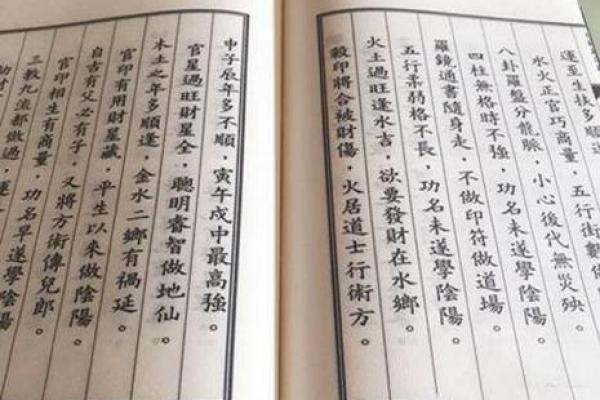 運至生扶多順
水火正官巧商量，五行術數
八卦羅盤分龍脈，小心後代無災殃
四柱無格時不強，功名未遂學陰陽。
羅鏡通書隨身走，不做印符做道場。
五行柔弱格不長，功名未遂學陰陽。
火土過旺逢水吉，欲要發財在水鄉。
殺印將合被財傷，火居道士行術方。
申子辰年多不順，寅午戌中最高強。
官星過旺財星全，聰明睿智做地仙。
木土之年多順逢，金水二鄉有禍延。
官印有用財星藏，平生以來做陰陽。
自古有父必有子，又將方術傳兒郎。
官印相生有商量，功名早遂學陰陽。
三教九流都做過，運
劫財